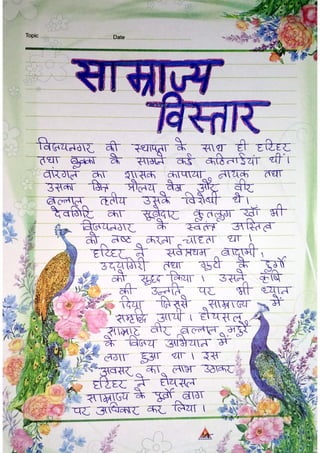 Topic
Date
साम्राज्य
विस्तार
विजयनगर की स्थापना के साथ ही हरिहर
तथा बुक्का के सामने कई कठिनाईयां थीं।
वारंगल का शासक कापाया नायक तथा
उसका मित्र प्रोलय वेम और वीर
बल्लाल तृतीय उसके विरोधी थे।
देवगिरि का सूबेदार कुतलुग खाँ भी
विजयनगर के स्वतंत्र अस्तित्व
को नष्ट करना चाहता था।
हरिहर ने सर्वप्रथम बादामी,
उदयगिरी तथा गुटी के दुर्गों
को सुदृढ़ किया। उसने कृषि
की उन्नति पर भी ध्यान
दिया जिससे साम्राज्य में
समृद्धि आयी। होयसल
सम्राट वीर बल्लाल मदुरै
के विजय अभियान में
लगा हुआ था। इस
अवसर का लाभ उठाकर
हरिहर ने होयसल
साम्राज्य के पूर्वी भाग
पर अधिकार कर लिया।